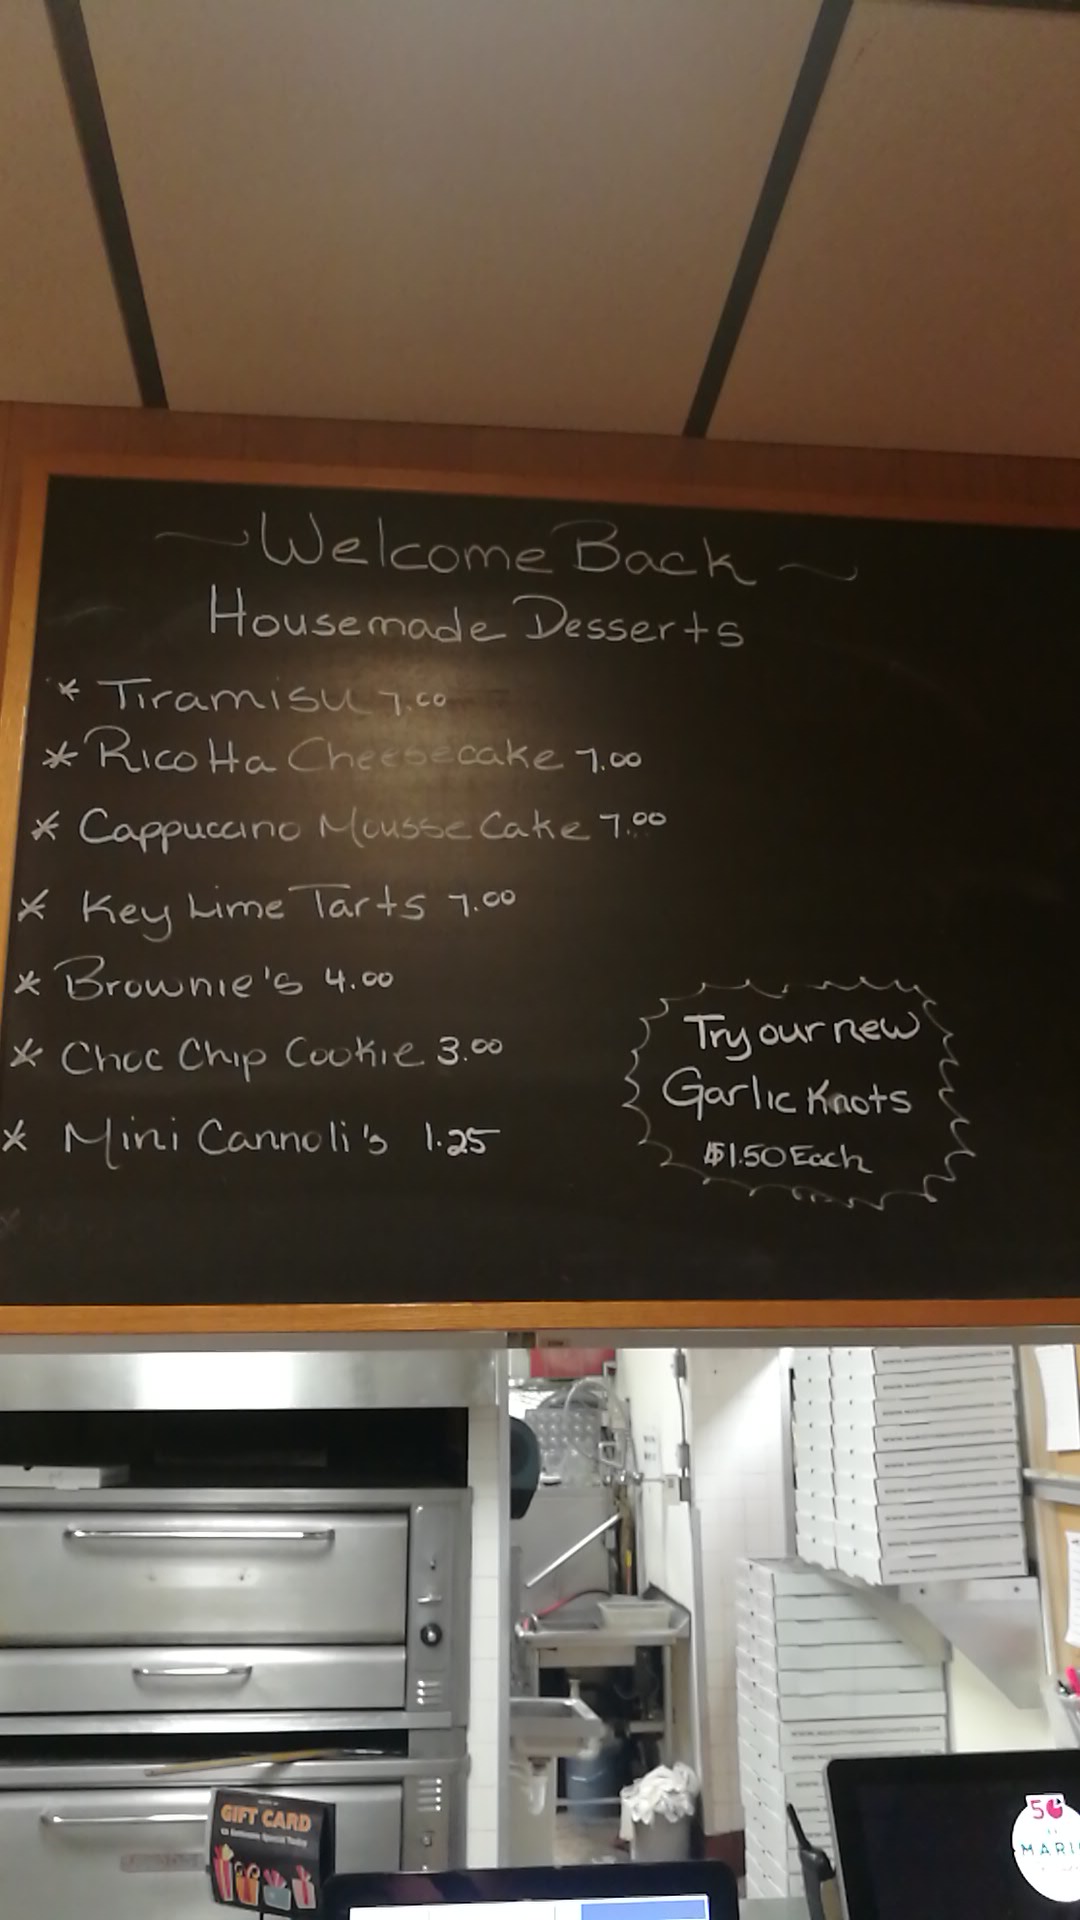 Welcome Back
Housemade Desserts
* Tiramisu 7.00
* Ricotta Cheesecake 7.00
* Cappuccino Mousse Cake 7.00
* Key Lime Tarts 7.00
* Brownie's 4.00
* Choc Chip Cookie 3.00
* Mini Cannoli's 1.25
Try our new
Garlic Knots
$1.50 Each
GIFT CARD
50
MARI